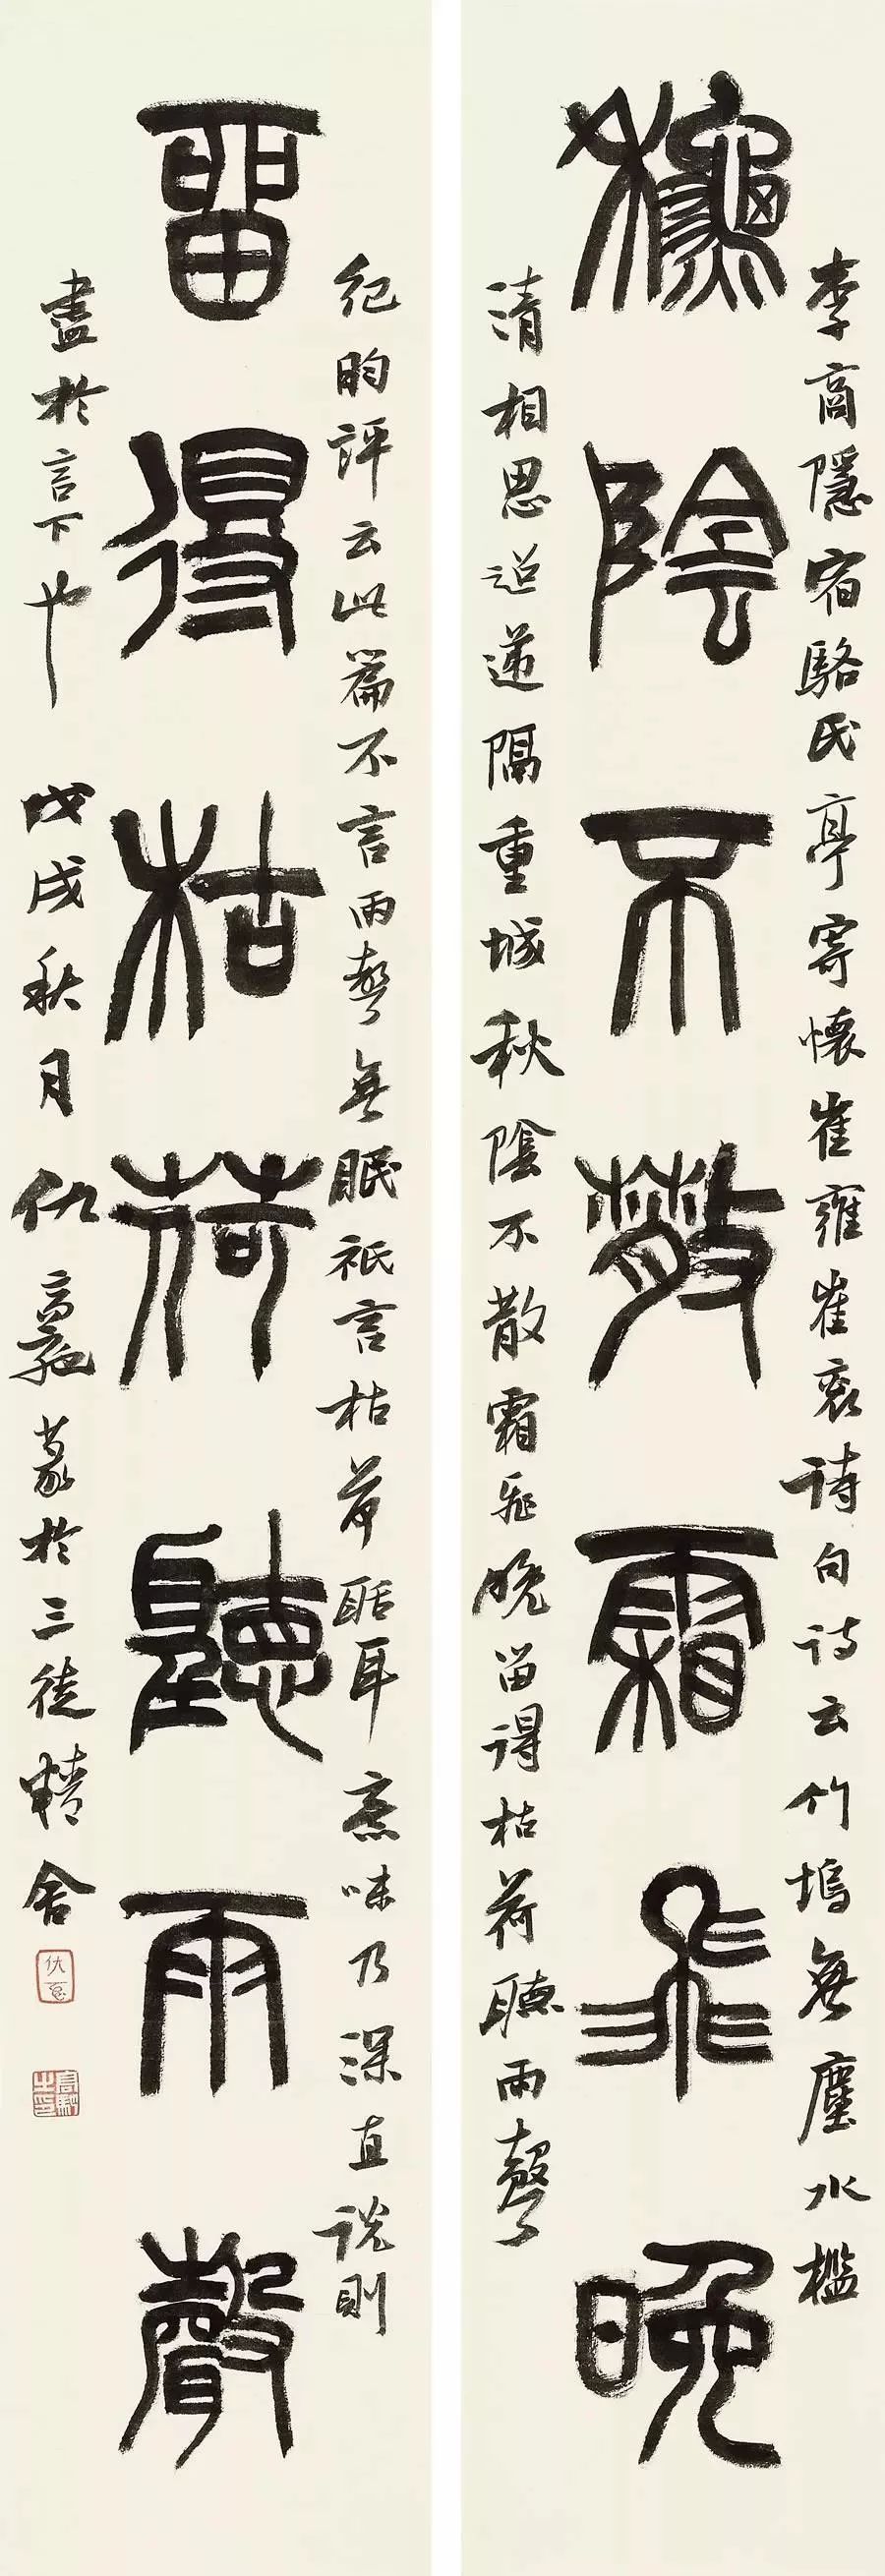 秋陰不散霜飛晚
李商隱宿駱氏亭寄懷崔雍崔袞詩句詩云竹塢無塵水檻
清相思迢遞隔重城秋陰不散霜飛晚留得枯荷聽雨聲
留得枯荷聽雨聲
紀昀評云此篇不言雨聲無眠祇言枯荷聒耳意味乃深直說則
盡於言下也 戊戌秋月仇高馳篆於三徒精舍